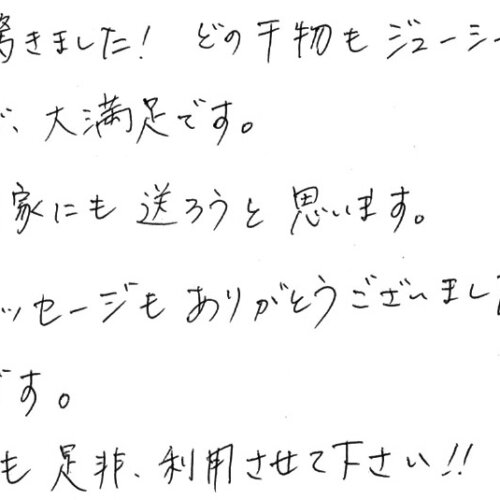 驚きました! どの干物もジューシー
、大満足です。
家にも送ろうと思います。
ッセージもありがとうございまし
です。
も是非、利用させて下さい!!